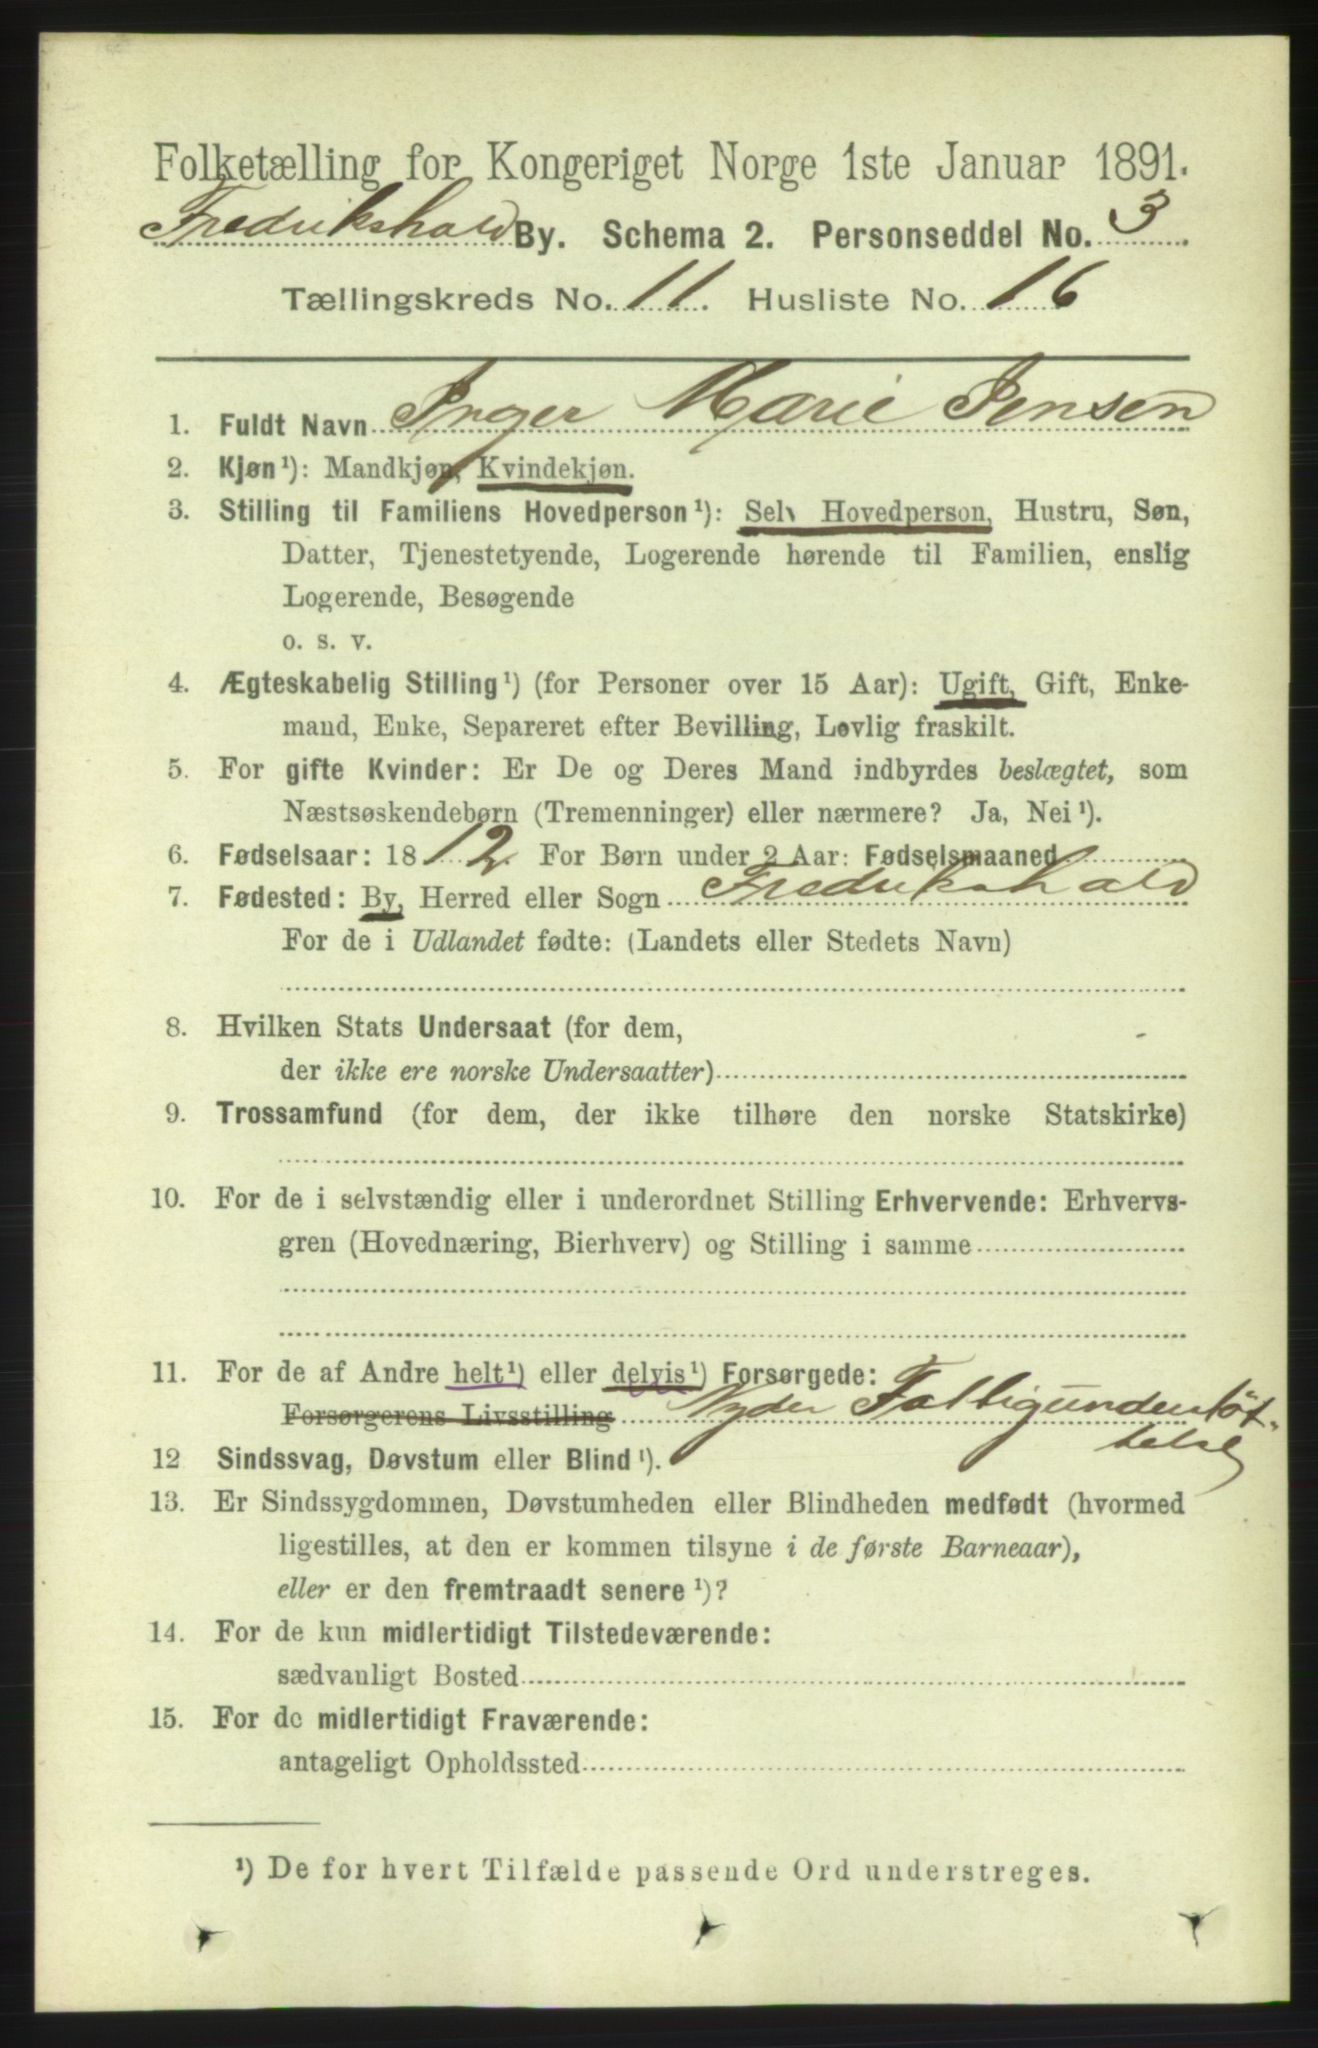 Folketælling for Kongeriget Norge 1ste Januar 1891.
Fredrikshald By. Schema 2. Personseddel No. 3
Tællingskreds No. 11. Husliste No. 16
1. Fuldt Navn Inger Marie Jensen
2. Kjøn¹): Mandkjøn, Kvindekjøn.
3. Stilling til Familiens Hovedperson¹): Selv Hovedperson, Hustru, Søn,
Datter, Tjenestetyende, Logerende hørende til Familien, enslig
Logerende, Besøgende
o. s. v.
4. Ægteskabelig Stilling¹) (for Personer over 15 Aar): Ugift, Gift, Enke-
mand, Enke, Separeret efter Bevilling, Lovlig fraskilt.
5. For gifte Kvinder: Er De og Deres Mand indbyrdes beslægtet, som
Næstsøskendebørn (Tremenninger) eller nærmere? Ja, Nei¹).
6. Fødselsaar: 1812. For Børn under 2 Aar: Fødselsmaaned
7. Fødested: By, Herred eller Sogn Fredrikshald
For de i Udlandet fødte: (Landets eller Stedets Navn)
8. Hvilken Stats Undersaat (for dem,
der ikke ere norske Undersaatter)
9. Trossamfund (for dem, der ikke tilhøre den norske Statskirke)
10. For de i selvstændig eller i underordnet Stilling Erhvervende: Erhvervs-
gren (Hovednæring, Bierhverv) og Stilling i samme
11. For de af Andre helt¹) eller delvis¹) Forsørgede:
Forsørgerens Livsstilling Nyder Fattigunderstöt-
telse
12 Sindssvag, Døvstum eller Blind¹).
13. Er Sindssygdommen, Døvstumheden eller Blindheden medfødt (hvormed
ligestilles, at den er kommen tilsyne i de første Barneaar),
eller er den fremtraadt senere¹)?
14. For de kun midlertidigt Tilstedeværende:
sædvanligt Bosted
15. For de midlertidigt Fraværende:
antageligt Opholdssted
¹) De for hvert Tilfælde passende Ord understreges.